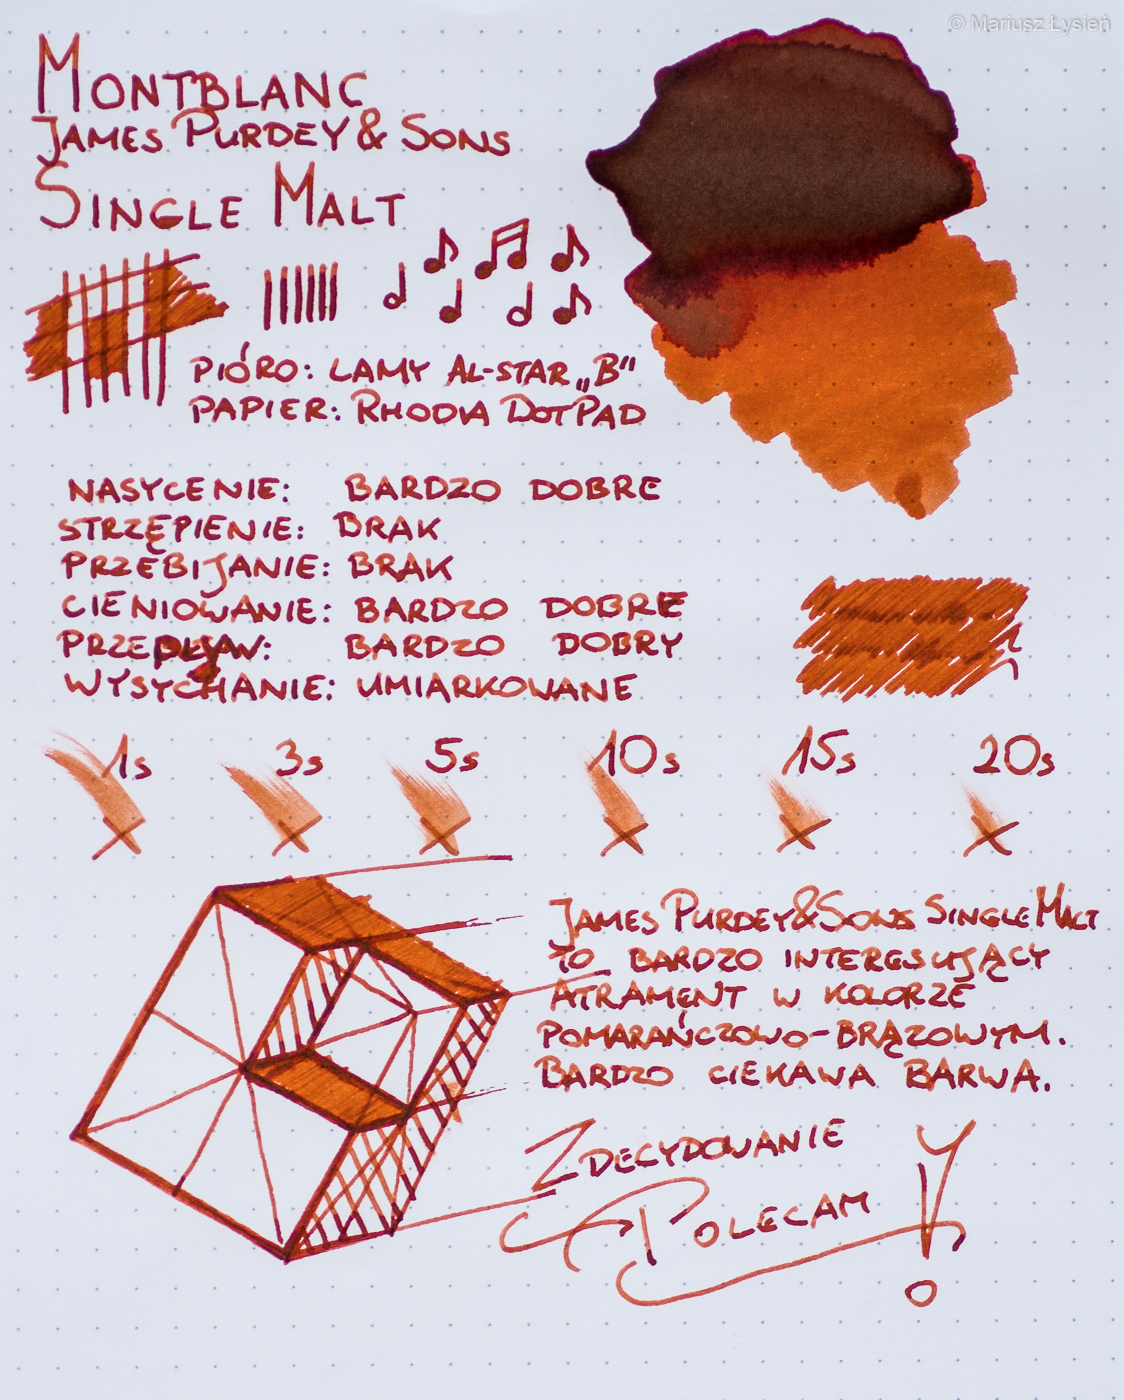 © Mariusz Łysień
MONTBLANC
JAMES PURDEY & SONS
SINGLE MALT
PIÓRO: LAMY AL-STAR „B"
PAPIER: RHODIA DOTPAD
NASYCENIE: BARDZO DOBRE
STRZĘPIENIE: BRAK
PRZEBIJANIE: BRAK
CIENIOWANIE: BARDZO DOBRE
PRZEPŁYW: BARDZO DOBRY
WYSYCHANIE: UMIARKOWANE
1s 3s 5s 10s 15s 20s
JAMES PURDEY&SONS SINGLE MALT
TO BARDZO INTERESUJĄCY
ATRAMENT W KOLORZE
POMARAŃCZOWO-BRĄZOWYM.
BARDZO CIEKAWA BARWA.
ZDECYDOWANIE
POLECAM!